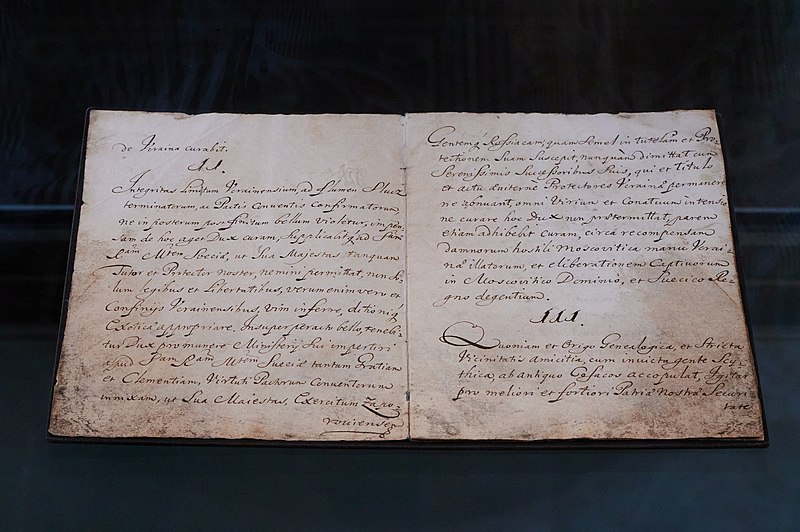 de Vcraina curabit.
II.
Integritas limitum Vcrainensium, ad flumen Slucz
terminatorum, ac Pactis Conventis Confirmatorum,
ne in posterum post finitum bellum violetur, impen-
sam de hoc aget Dux curam, Supplicabitq̃ ad Iam
Ram Mtem Sueciæ, ut Sua Majestas tanquam
Tutor et Protector noster, nemini permittat, non So-
lum legibus et Libertatibus, verum enim vero et
Confinijs Vcrainensibus, vim inferre, ditioniq̃
Exoticæ appropriare. Insuper peracto bello, tenebi-
tur Dux pro munere Ministerij Sui impertiri
apud Iam Ram Mtem Sueciæ tantam Gratiam
et Clementiam, Virtuti Pactorum Conventorum
innixam, ut Sua Maiestas, Exercitum Zapo-
rovienses
Gentemq̃ Rossiacam, quam Semel in tutelam et Pro-
tectionem Suam Suscepit, nunquàm dimittat cum
Serenissimis Successoribus Suis, qui et titulo
et actu æuiterne Protectores Vcrainæ permanere
ne renuant, omni Virium et Conatuum intensio-
ne curare hoc Dux non prætermittat, parem
etiam adhibebit curam, circa recompensam
damnorum hostili Moscovitica manu Vcrai-
næ illatorum, et liberationem Captivorum
in Moscovitico Dominio, et Suecico Re-
gno degentium.
III.
Quoniam et Origo Genealogica, et Stricta
Vicinitatis Amicitia, cum invicta gente Scy-
thica, ab antiquo Cosacos accopulat,
pro meliori et fortiori Patriæ Nostræ Securi-
tate